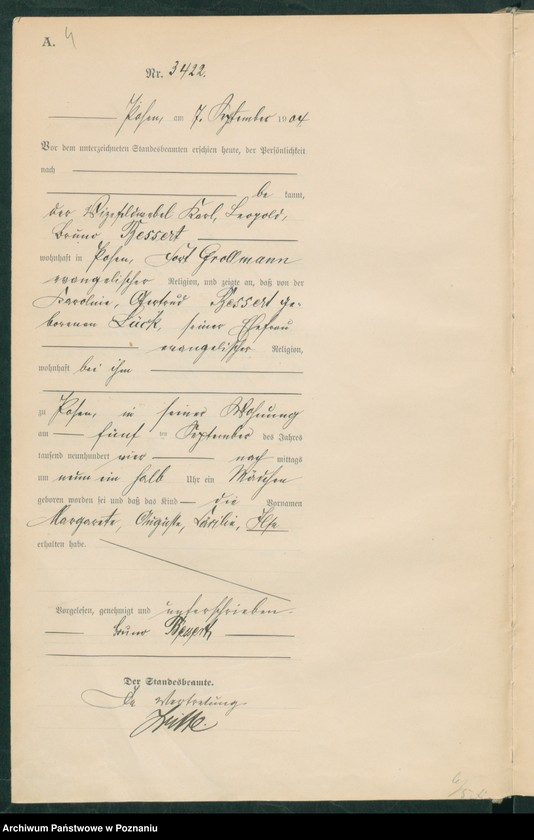 A. 4
Nr. 3422.
Posen, am 7. September 1904
Vor dem unterzeichneten Standesbeamten erschien heute, der Persönlichkeit
nach
be kannt,
der Vizefeldwebel Karl, Leopold,
Bruno Bessert
wohnhaft in Posen, Fort Grollmann
evangelischer Religion, und zeigte an, daß von der
Karoline, Gertrud Bessert ge-
borenen Lück, seiner Ehefrau
evangelischer Religion,
wohnhaft bei ihm
zu Posen, in seiner Wohnung
am fünf ten September des Jahres
tausend neunhundert vier nach mittags
um neun ein halb Uhr ein Mädchen
geboren worden sei und daß das Kind die Vornamen
Margarete, Auguste, Cäcilie, Ilse
erhalten habe.
Vorgelesen, genehmigt und unterschrieben.
Bruno Bessert
Der Standesbeamte.
In Vertretung.
Archiwum Państwowe w Poznaniu